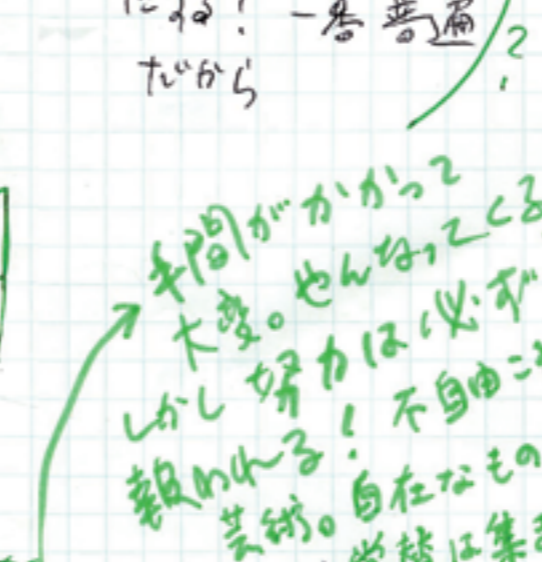 だね！一番普通
だから
？
手間がかかって
大変。やんなってくる
しかし努力は必ず
報われる！不自由こそ
芸術。自在なもの
は集ま